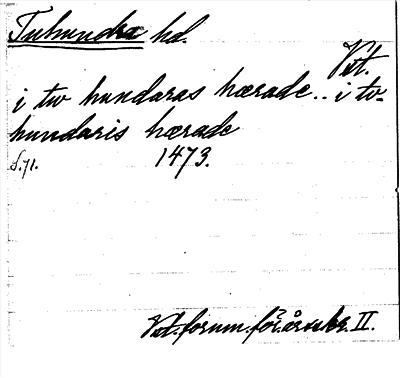 Tuhundra hd.
Vst.
i tw hundaras hærade.. i tv-
hundaris hærade
s. 71. 1473.
Vst. fornm. för. årsskr. II.